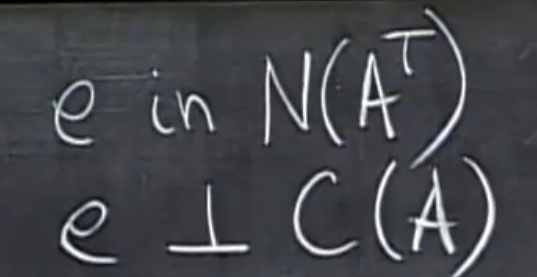 e in N(Aᵀ)
e ⊥ C(A)